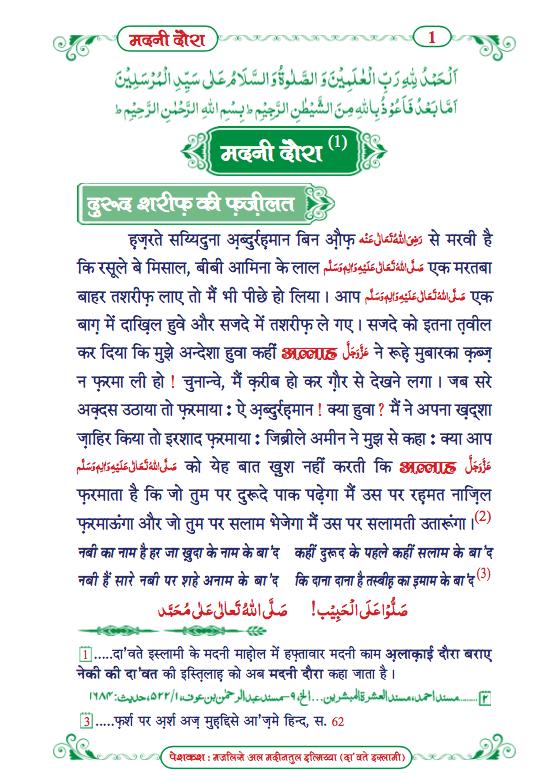 मदनी दौरा
1
اَلْحَمْدُ لِلّٰہِ رَبِّ الْعٰلَمِیْنَ وَ الصَّلٰوۃُ وَالسَّلَامُ عَلٰی سَیِّدِ الْمُرْسَلِیْنَ
اَمَّا بَعْدُ فَاَعُوْذُ بِاللّٰہِ مِنَ الشَّیْطٰنِ الرَّجِیْمِ ط بِسْمِ اللّٰہِ الرَّحْمٰنِ الرَّحِیْمِ ط
मदनी दौरा (1)
दुरूद शरीफ़ की फ़ज़ीलत
हज़रते सय्यिदुना अ़ब्दुर्रह़मान बिन औ़फ़ رَضِیَ اللّٰہُ تَعَالٰی عَنْہ से मरवी है
कि रसूले बे मिसाल, बीबी आमिना के लाल صَلَّی اللّٰہُ تَعَالٰی عَلَیْہِ وَاٰلِہٖ وَسَلَّم एक मरतबा
बाहर तशरीफ़ लाए तो मैं भी पीछे हो लिया । आप صَلَّی اللّٰہُ تَعَالٰی عَلَیْہِ وَاٰلِہٖ وَسَلَّم एक
बाग़ में दाख़िल हुवे और सजदे में तशरीफ़ ले गए । सजदे को इतना त़वील
कर दिया कि मुझे अन्देशा हुवा कहीं अल्लाह عَزَّوَجَلَّ ने रूह़े मुबारका क़ब्ज़
न फ़रमा ली हो ! चुनान्चे, मैं क़रीब हो कर ग़ौर से देखने लगा । जब सरे
अक़्दस उठाया तो फ़रमाया : ऐ अ़ब्दुर्रह़मान ! क्या हुवा ? मैं ने अपना ख़द्शा
ज़ाहिर किया तो इरशाद फ़रमाया : जिब्रीले अमीन ने मुझ से कहा : क्या आप
صَلَّی اللّٰہُ تَعَالٰی عَلَیْہِ وَاٰلِہٖ وَسَلَّم को येह बात ख़ुश नहीं करती कि अल्लाह عَزَّوَجَلَّ
फ़रमाता है कि जो तुम पर दुरूदे पाक पढ़ेगा मैं उस पर रह़मत नाज़िल
फ़रमाऊंगा और जो तुम पर सलाम भेजेगा मैं उस पर सलामती उतारूंगा ।(2)
नबी का नाम है हर जा ख़ुदा के नाम के बा'द कहीं दुरूद के पहले कहीं सलाम के बा'द
नबी हैं सारे नबी पर शहे अनाम के बा'द कि दाना दाना है तस्बीह़ का इमाम के बा'द (3)
صَلُّوْا عَلَی الْحَبِیْب! صَلَّی اللّٰہُ تَعَالٰی عَلٰی مُحَمَّد
1 .....दा'वते इस्लामी के मदनी माह़ोल में हफ़्तावार मदनी काम अ़लाक़ाई दौरा बराए
नेकी की दा'वत की इस्त़िलाह़ को अब मदनी दौरा कहा जाता है ।
2 .....مسند احمد، مسند العشرۃ المبشرین...الخ، ۹-مسند عبد الرحمٰن بن عوف، ۱/۵۲۲، حدیث: ۱۶۸۴
3 .....फ़र्श पर अ़र्श अज़ मुह़द्दिसे आ'ज़मे हिन्द, स. 62
पेशकश : मजलिसे अल मदीनतुल इल्मिय्या (दा'वते इस्लामी)